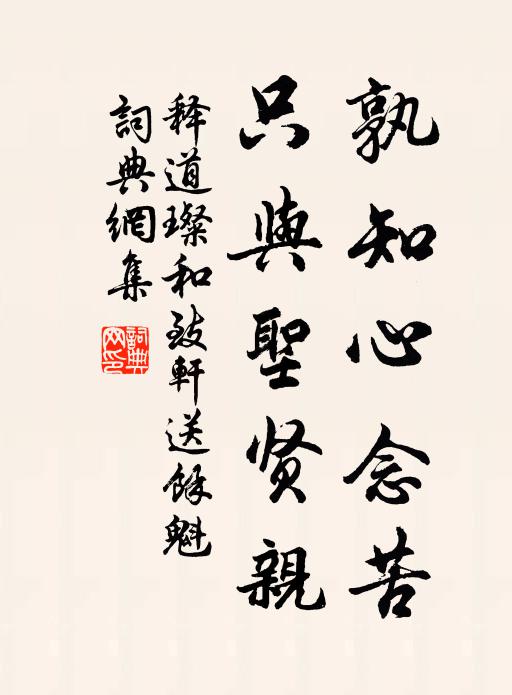 孰知心念苦
只與聖贤親
释道璨和致軒送馀魁
詞典網集
詞典網印